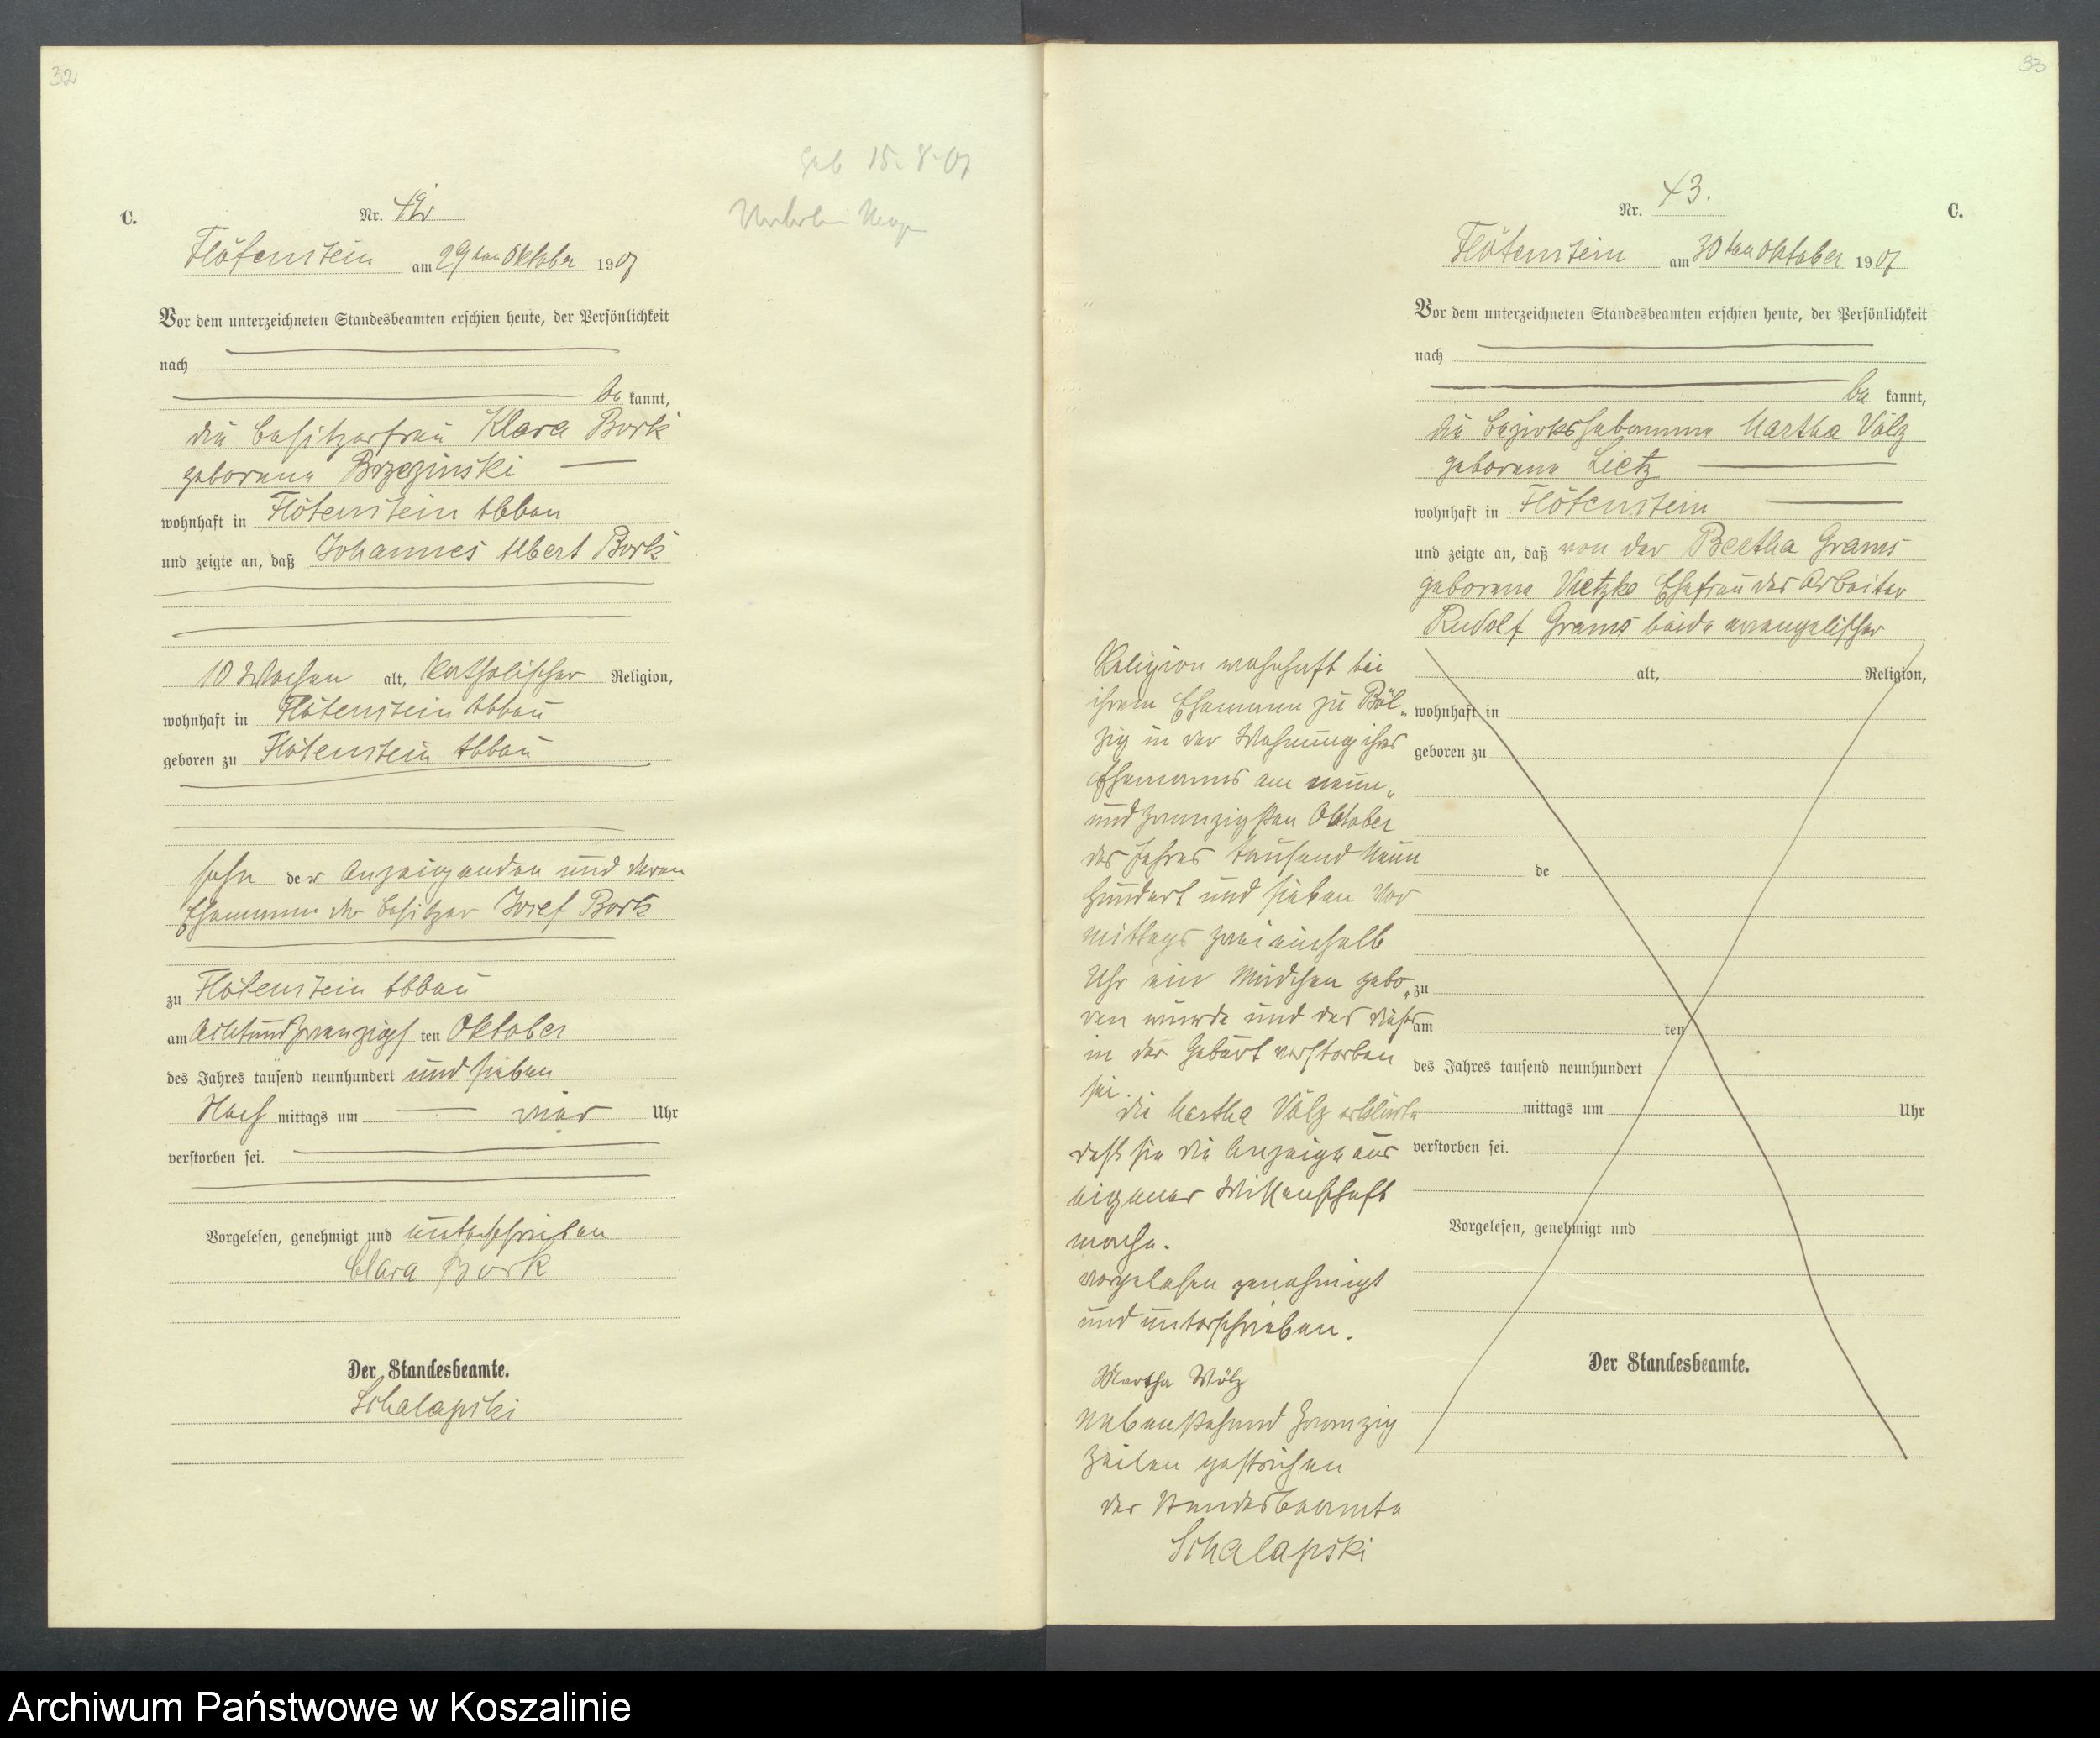 32
geb 15. 8. 07
C.
Nr. 42
Flötenstein am 29ten Oktober 1907
Vor dem unterzeichneten Standesbeamten erschien heute, der Persönlichkeit
nach
be kannt,
die Besitzerfrau Klara Bork
geborene Brzezinski
wohnhaft in Flötenstein Abbau
und zeigte an, daß Johannes Albert Bork
10 Wochen alt, katholischer Religion,
wohnhaft in Flötenstein Abbau
geboren zu Flötenstein Abbau
Sohn der Anzeigenden und deren
Ehemann der Besitzer Josef Bork
zu Flötenstein Abbau
am achtundzwanzigs ten Oktober
des Jahres tausend neunhundert und sieben
Nach mittags um vier Uhr
verstorben sei.
Vorgelesen, genehmigt und unterschrieben
Clara Bork
Der Standesbeamte.
Schalapski
33
C.
Nr. 43.
Flötenstein am 30ten Oktober 1907
Vor dem unterzeichneten Standesbeamten erschien heute, der Persönlichkeit
nach
be kannt,
die Bezirkshebamme Martha Völz
geborene Lietz
wohnhaft in Flötenstein
und zeigte an, daß von der Bertha Grams
geborene Vietzke Ehefrau des Arbeiter
Rudolf Grams beide evangelischer
Religion wohnhaft bei
ihrem Ehemann zu Böl„
zig in der Wohnung ihres
Ehemanns am neun„
und zwanzigsten Oktober
des Jahres tausend neun
hundert und sieben Vor
mittags zwei einhalb
Uhr ein Mädchen gebo„
ren wurde und das dieses
in der Geburt verstorben
sei.
die Martha Völz erklärte
daß sie die Anzeige aus
eigener Wissenschaft
mache.
vorgelesen genehmigt
und unterschrieben.
Martha Völz
Nebenstehend zwanzig
Zeilen gestrichen
der Standesbeamte
Schalapski
alt, Religion,
wohnhaft in
geboren zu
de
zu
am ten
des Jahres tausend neunhundert
mittags um Uhr
verstorben sei.
Vorgelesen, genehmigt und
Der Standesbeamte.
Archiwum Państwowe w Koszalinie